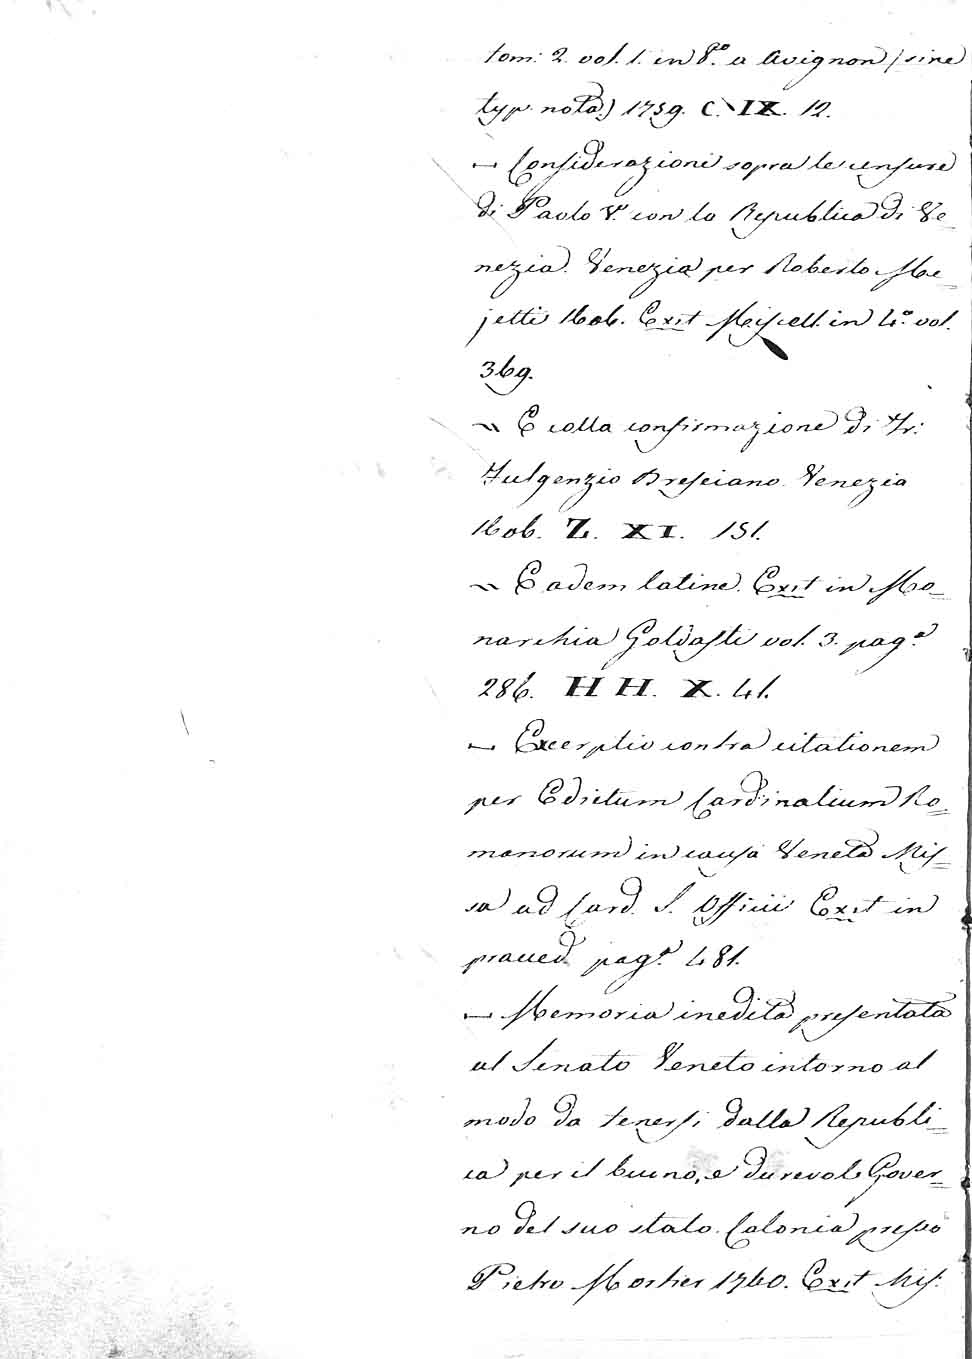 tom: 2. vol. 1. in 8.º a Avignon (sine
typ. nota.) 1759. C. IX. 12.
— Considerazioni sopra le censure
di Paolo V.º con la Republica di Ve=
nezia. Venezia per Roberto Me=
jetti 1606. Exit Miscell. in 4.º vol.
369.
~ E colla confirmazione di Fr:
Fulgenzio Bresciano. Venezia
1606. Z. XI. 151.
~ Eadem latine. Exit in Mo=
narchia Goldasti vol. 3. pag.ª
286. HH. X. 41.
— Excerptio contra citationem
per Edictum Cardinalium Ro=
manorum in causa Veneta Mis=
sa ad Card. S. Officii Exit in
præced. pag.ª 481.
— Memoria inedita presentata
al Senato Veneto intorno al
modo da tenersi dalla Republi=
ca per il buono, e durevol Gover=
no del suo stato. Colonia presso
Pietro Mortier 1760. Exit Mis: